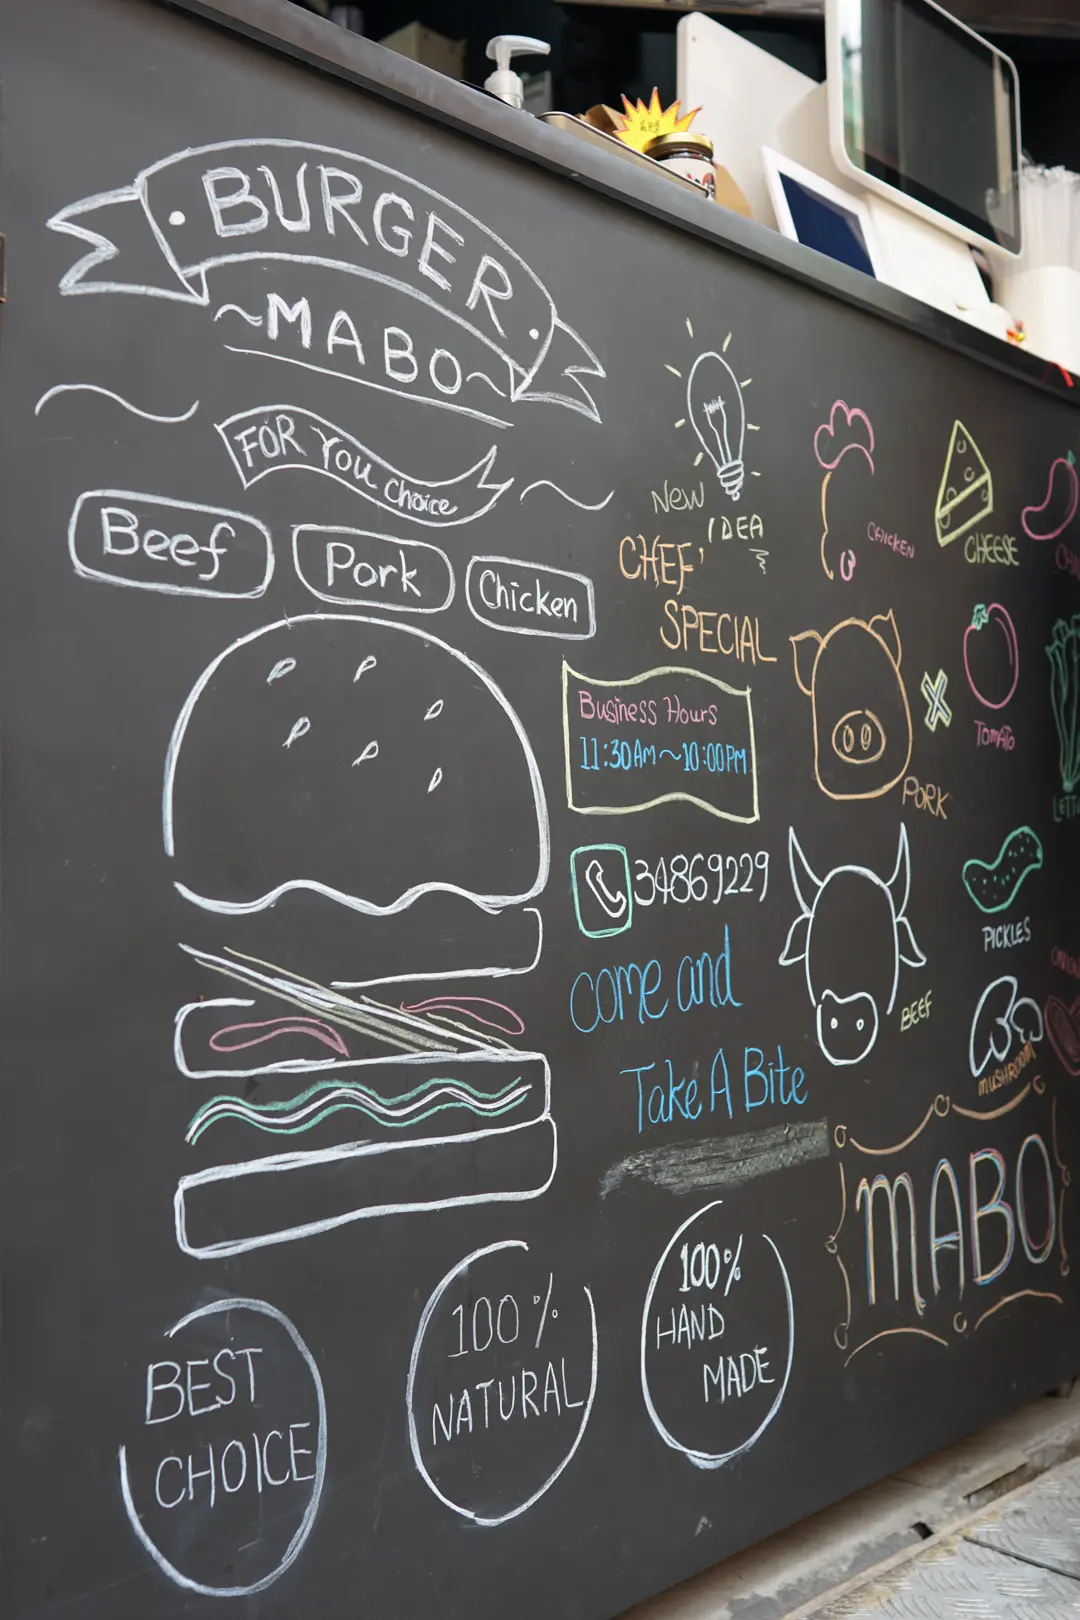 BURGER
~MABO~
FOR You choice
Beef
Pork
Chicken
New
IDEA
CHEF'
SPECIAL
Business Hours
11:30AM~10:00PM
34869229
come and
Take A Bite
CHICKEN
CHEESE
PORK
TOMATO
BEEF
PICKLES
MUSHROOM
MABO
BEST
CHOICE
100%
NATURAL
100%
HAND
MADE